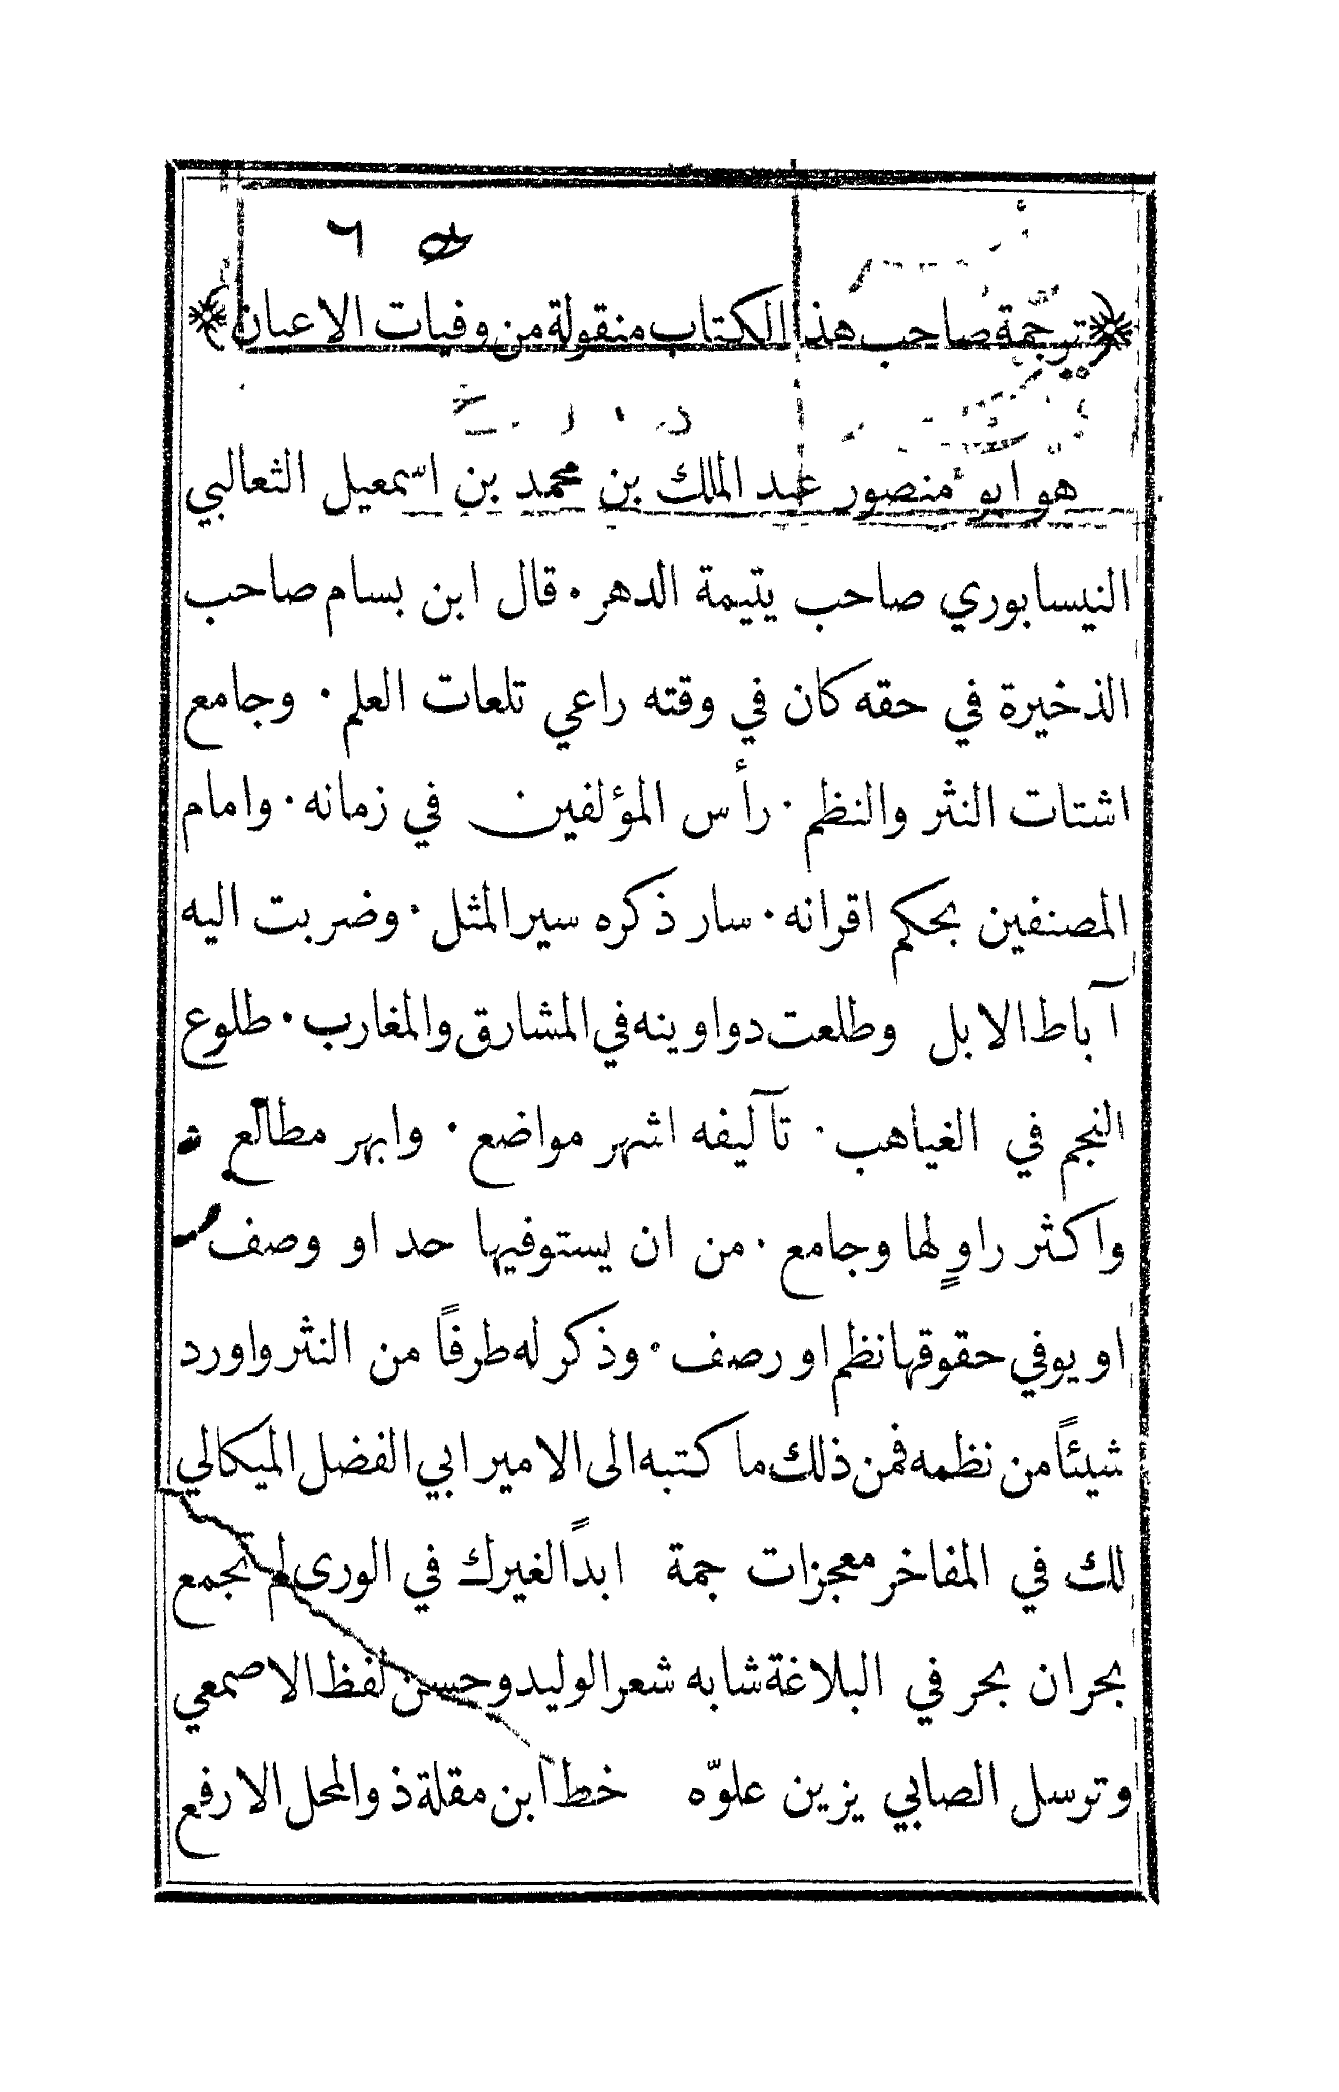 ترجمة صاحب هذا الكتاب منقولة من وفيات الاعيان
هو ابو منصور عبد الملك بن محمد بن اسمعيل الثعالبي
النيسابوري صاحب يتيمة الدهر • قال ابن بسام صاحب
الذخيرة في حقه كان في وقته راعي تلعات العلم • وجامع
اشتات النثر والنظم • رأس المؤلفين في زمانه • وامام
المصنفين بحكم اقرانه • سار ذكره سير المثل • وضربت اليه
آباط الابل وطلعت دواوينه في المشارق والمغارب • طلوع
النجم في الغياهب • تآليفه اشهر مواضع • وابهر مطالع
واكثر راوٍ لها وجامع • من ان يستوفيها حد او وصف
او يوفي حقوقها نظم او رصف • وذكر له طرفاً من النثر واورد
شيئاً من نظمه فمن ذلك ما كتبه الى الامير ابي الفضل الميكالي
لك في المفاخر معجزات جمة ابداً لغيرك في الورى لم تجمع
بحران بحر في البلاغة شابه شعر الوليد وحسن لفظ الاصمعي
وترسل الصابي يزين علوّه خط ابن مقلة ذو المحل الارفع